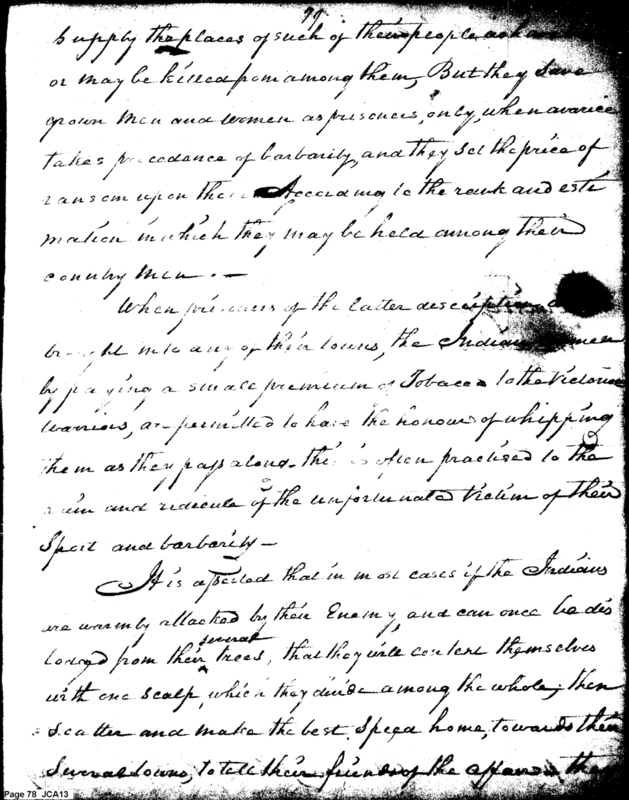 79
Supply the places of such of their people as have
or may be killed from among them, But they save
grown Men and women as prisoners, only, when avarice
takes precedence of barbarity, and they set the price of
ransom upon them According to the rank and esti
mation in which they may be held among their
country Men. —
When prisoners of the latter description are
brought into any of their towns, the Indian women
by paying a small premium of Tobacco to the Victorious
warriors, are permitted to have the honour of whipping
them as they pass along - this is often practised to the
and ridicule of the unfortunate Victim of their
Sport and barbarity —
It is asserted that in most cases if the Indians
are warmly attacked by their Enemy, and can once be dis
several
lodged from their trees, that they will content themselves
with one scalp, which they divide among the whole; then
scatter and make the best Speed home, towards their
Several towns, to tell their friends of the affair
Page 78 JCA13